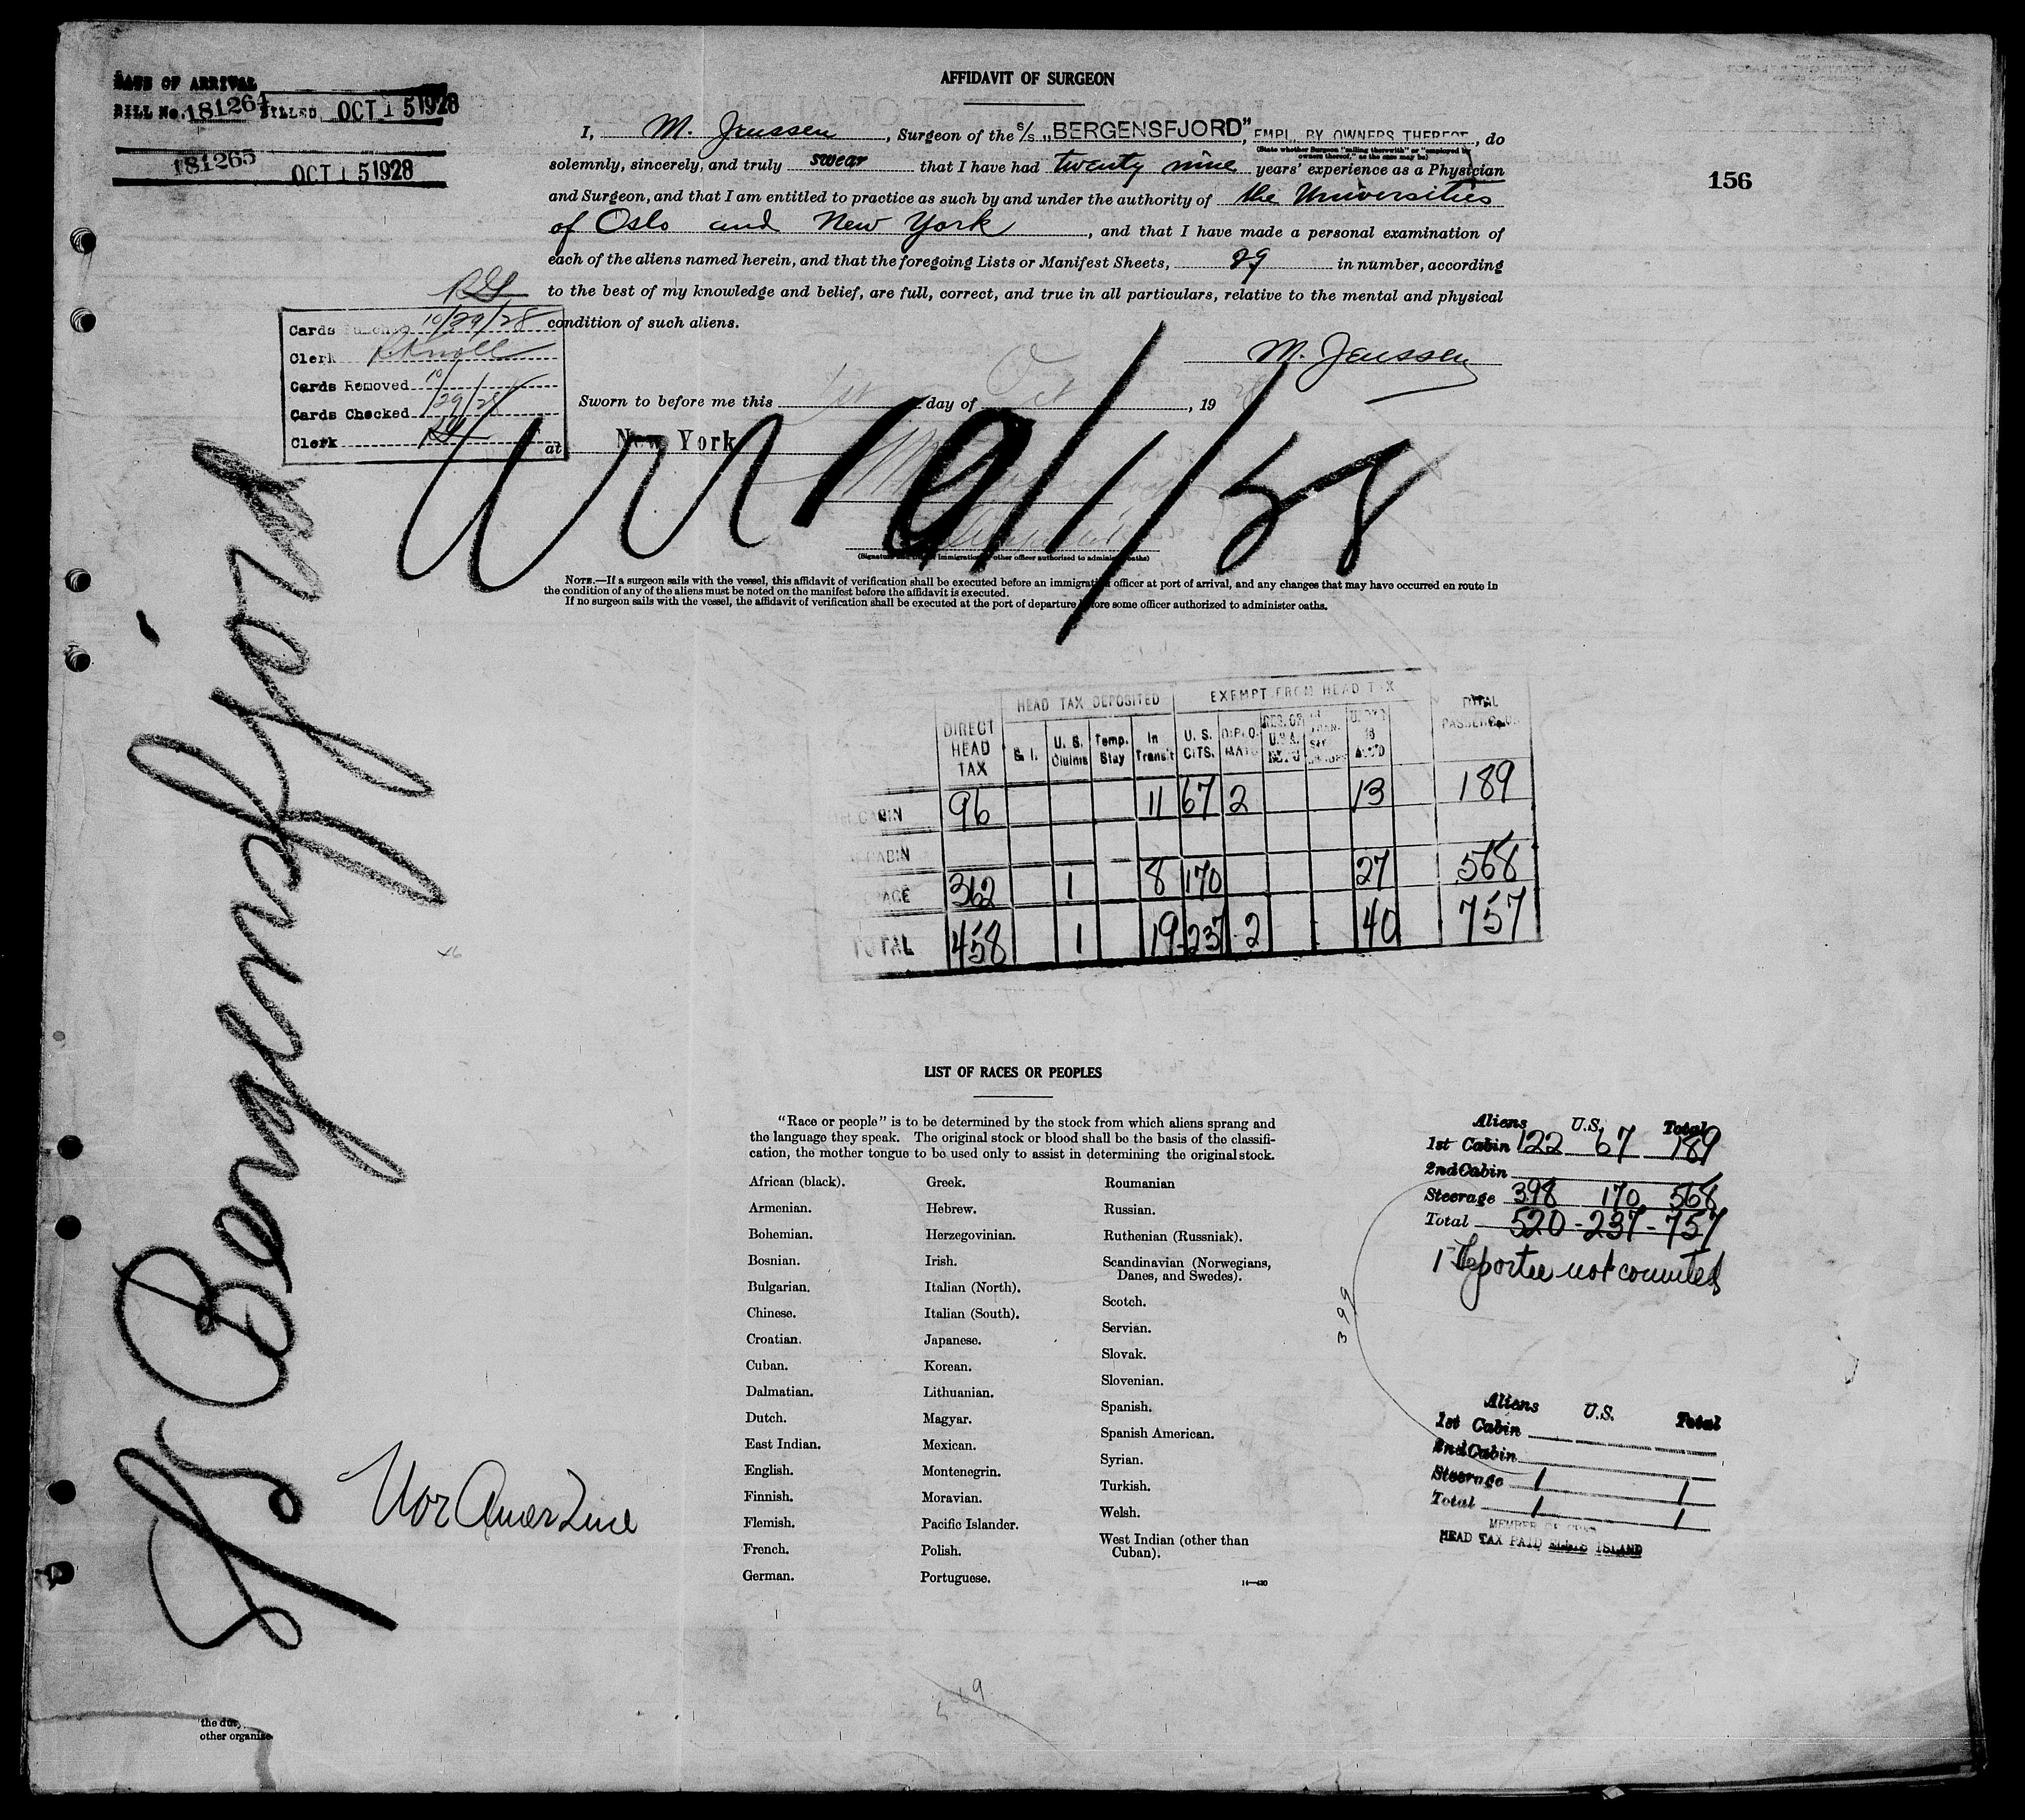 DATE OF ARRIVAL
BILL No. 181264 BILLED OCT 15 1928
181265 OCT 15 1928
156
AFFIDAVIT OF SURGEON
I, M. Janssen, Surgeon of the s/s „BERGENSFJORD”, EMPL. BY OWNERS THEREOF, do
(State whether Surgeon "sailing therewith" or "employed by
owners thereof," as the case may be)
solemnly, sincerely, and truly swear that I have had twenty nine years' experience as a Physician
and Surgeon, and that I am entitled to practice as such by and under the authority of the Universities
of Oslo and New York, and that I have made a personal examination of
each of the aliens named herein, and that the foregoing Lists or Manifest Sheets, 29 in number, according
to the best of my knowledge and belief, are full, correct, and true in all particulars, relative to the mental and physical
condition of such aliens.
M. Janssen
Cards Punched 10/29/28
Clerk
Cards Removed 10/
Cards Checked 29/28
Clerk
Sworn to before me this 1st day of Oct, 19 28
at New York
10/1/28
(Signature and title of immigration or other officer authorized to administer oaths)
NOTE.—If a surgeon sails with the vessel, this affidavit of verification shall be executed before an immigration officer at port of arrival, and any changes that may have occurred en route in
the condition of any of the aliens must be noted on the manifest before the affidavit is executed.
If no surgeon sails with the vessel, the affidavit of verification shall be executed at the port of departure before some officer authorized to administer oaths.
S/S Bergensfjord
Nor Amer Line
HEAD TAX DEPOSITED EXEMPT FROM HEAD TAX
DIRECT HEAD TAX U. S. Claims Temp. Stay In Transit U. S. CITS. DIPLOMATS TOTAL PASSENGERS
CABIN 96 11 67 2 13 189
CABIN
362 1 8 170 27 568
TOTAL 458 1 19 237 2 40 757
LIST OF RACES OR PEOPLES
"Race or people" is to be determined by the stock from which aliens sprang and
the language they speak. The original stock or blood shall be the basis of the classifi-
cation, the mother tongue to be used only to assist in determining the original stock.
African (black).
Armenian.
Bohemian.
Bosnian.
Bulgarian.
Chinese.
Croatian.
Cuban.
Dalmatian.
Dutch.
East Indian.
English.
Finnish.
Flemish.
French.
German.
Greek.
Hebrew.
Herzegovinian.
Irish.
Italian (North).
Italian (South).
Japanese.
Korean.
Lithuanian.
Magyar.
Mexican.
Montenegrin.
Moravian.
Pacific Islander.
Polish.
Portuguese.
Roumanian
Russian.
Ruthenian (Russniak).
Scandinavian (Norwegians,
Danes, and Swedes).
Scotch.
Servian.
Slovak.
Slovenian.
Spanish.
Spanish American.
Syrian.
Turkish.
Welsh.
West Indian (other than
Cuban).
14—430
Aliens U.S. Total
1st Cabin 122 67 189
2nd Cabin
Steerage 398 170 568
Total 520 - 237 - 757
1 Deportee not counted
399
Aliens U.S. Total
1st Cabin
2nd Cabin
Steerage 1 1
Total 1 1
HEAD TAX PAID ELLIS ISLAND
the duty
other organize